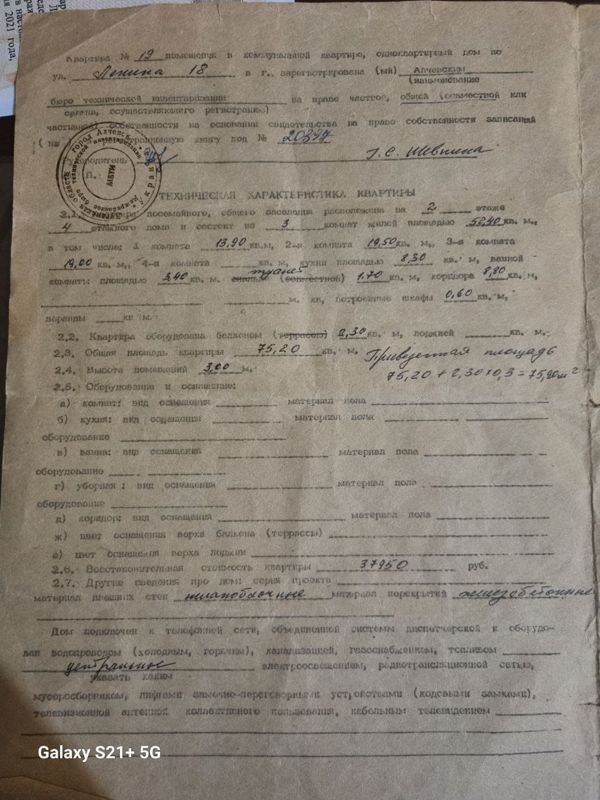 Квартира № 19 помещения в коммунальной квартире, одноквартирный дом по
ул. Ленина 18 в г. зарегистрирована (ый) Алчевским
(наименование
бюро технической инвентаризации на праве частной, общей (совместной или
органа, осуществляющего регистрацию)
частичной) собственности на основании свидетельства на право собственности записаний
книгу под № 20894
Г.С. Шевнина
ТЕХНИЧЕСКАЯ ХАРАКТЕРИСТИКА КВАРТИРЫ
2.1. посемейного, общего заселения расположена на 2 этаже
4 этажного дома и состоит из 3 комнат жилой площадью 52,40 кв. м.,
в том числе: 1 комната 13,90 кв.м, 2-я комната 19,50 кв. м., 3-я комната
19,00 кв. м., 4-я комната кв.м, кухни площадью 8,30 кв. м, ванной
комнаты площадью 3,40 кв. м. туалет (совместной) 1,70 кв. м, коридора 8,80 кв. м,
м. кв, встроенные шкафы 0,60 кв. м,
веранды кв м.
2.2. Квартира оборудована балконом (террасой) 2,30 кв. м, лоджией кв. м.
2.3. Общая площадь квартиры 75,20 кв. м. Приведенная площадь
2.4. Высота помещений 3,00 м. 75,20 + 2,30×0,3 = 75,90 м²
2.5. Оборудование и оснащение:
а) комнат: вид оснащения материал пола
б) кухня: вид оснащения материал пола
оборудование
в) ванна: вид оснащения материал пола
оборудование
г) уборная : вид оснащения материал пола
оборудование
д) коридор: вид оснащения материал пола
ж) цвет оснащения верха балкона (террассы)
е) цвет оснащения верха лоджии
2.6. Восстановительная стоимость квартиры 37950 руб.
2.7. Другие сведения про дом: серия проекта
материал внешних стен шлакоблочные материал перекрытий железобетонные
Дом подключен к телефонной сети, объединенной системы диспетчерской и оборудо-
ван водопроводом (холодным, горячим), канализацией, газоснабжением, топливом
центральное электроосвещением, радиотрансляционной сетью,
указать каким
мусоросборником, лифтами замочно-переговорными устройствами (кодовыми замками),
телевизионной антенной коллективного пользования, кабельным телевидением
Galaxy S21+ 5G